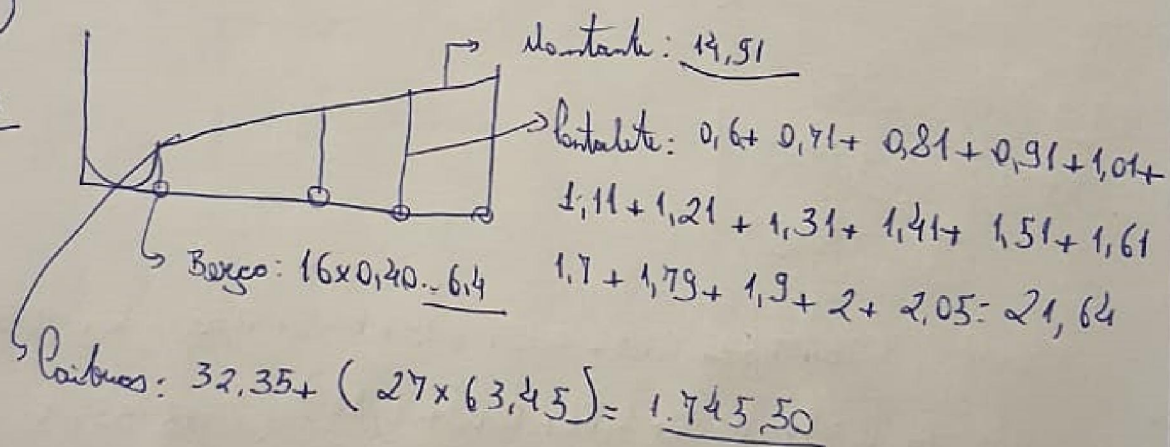 Montante: 14,91
Pontalete: 0,6+ 0,71+ 0,81+0,91+1,01+
1,11+1,21+1,31+1,41+ 1,51+1,61
1,7+1,79+1,9+2+2,05= 21,64
Berço: 16x0,40= 6,4
Caibros: 32,35+ (27x63,45)= 1.745,50